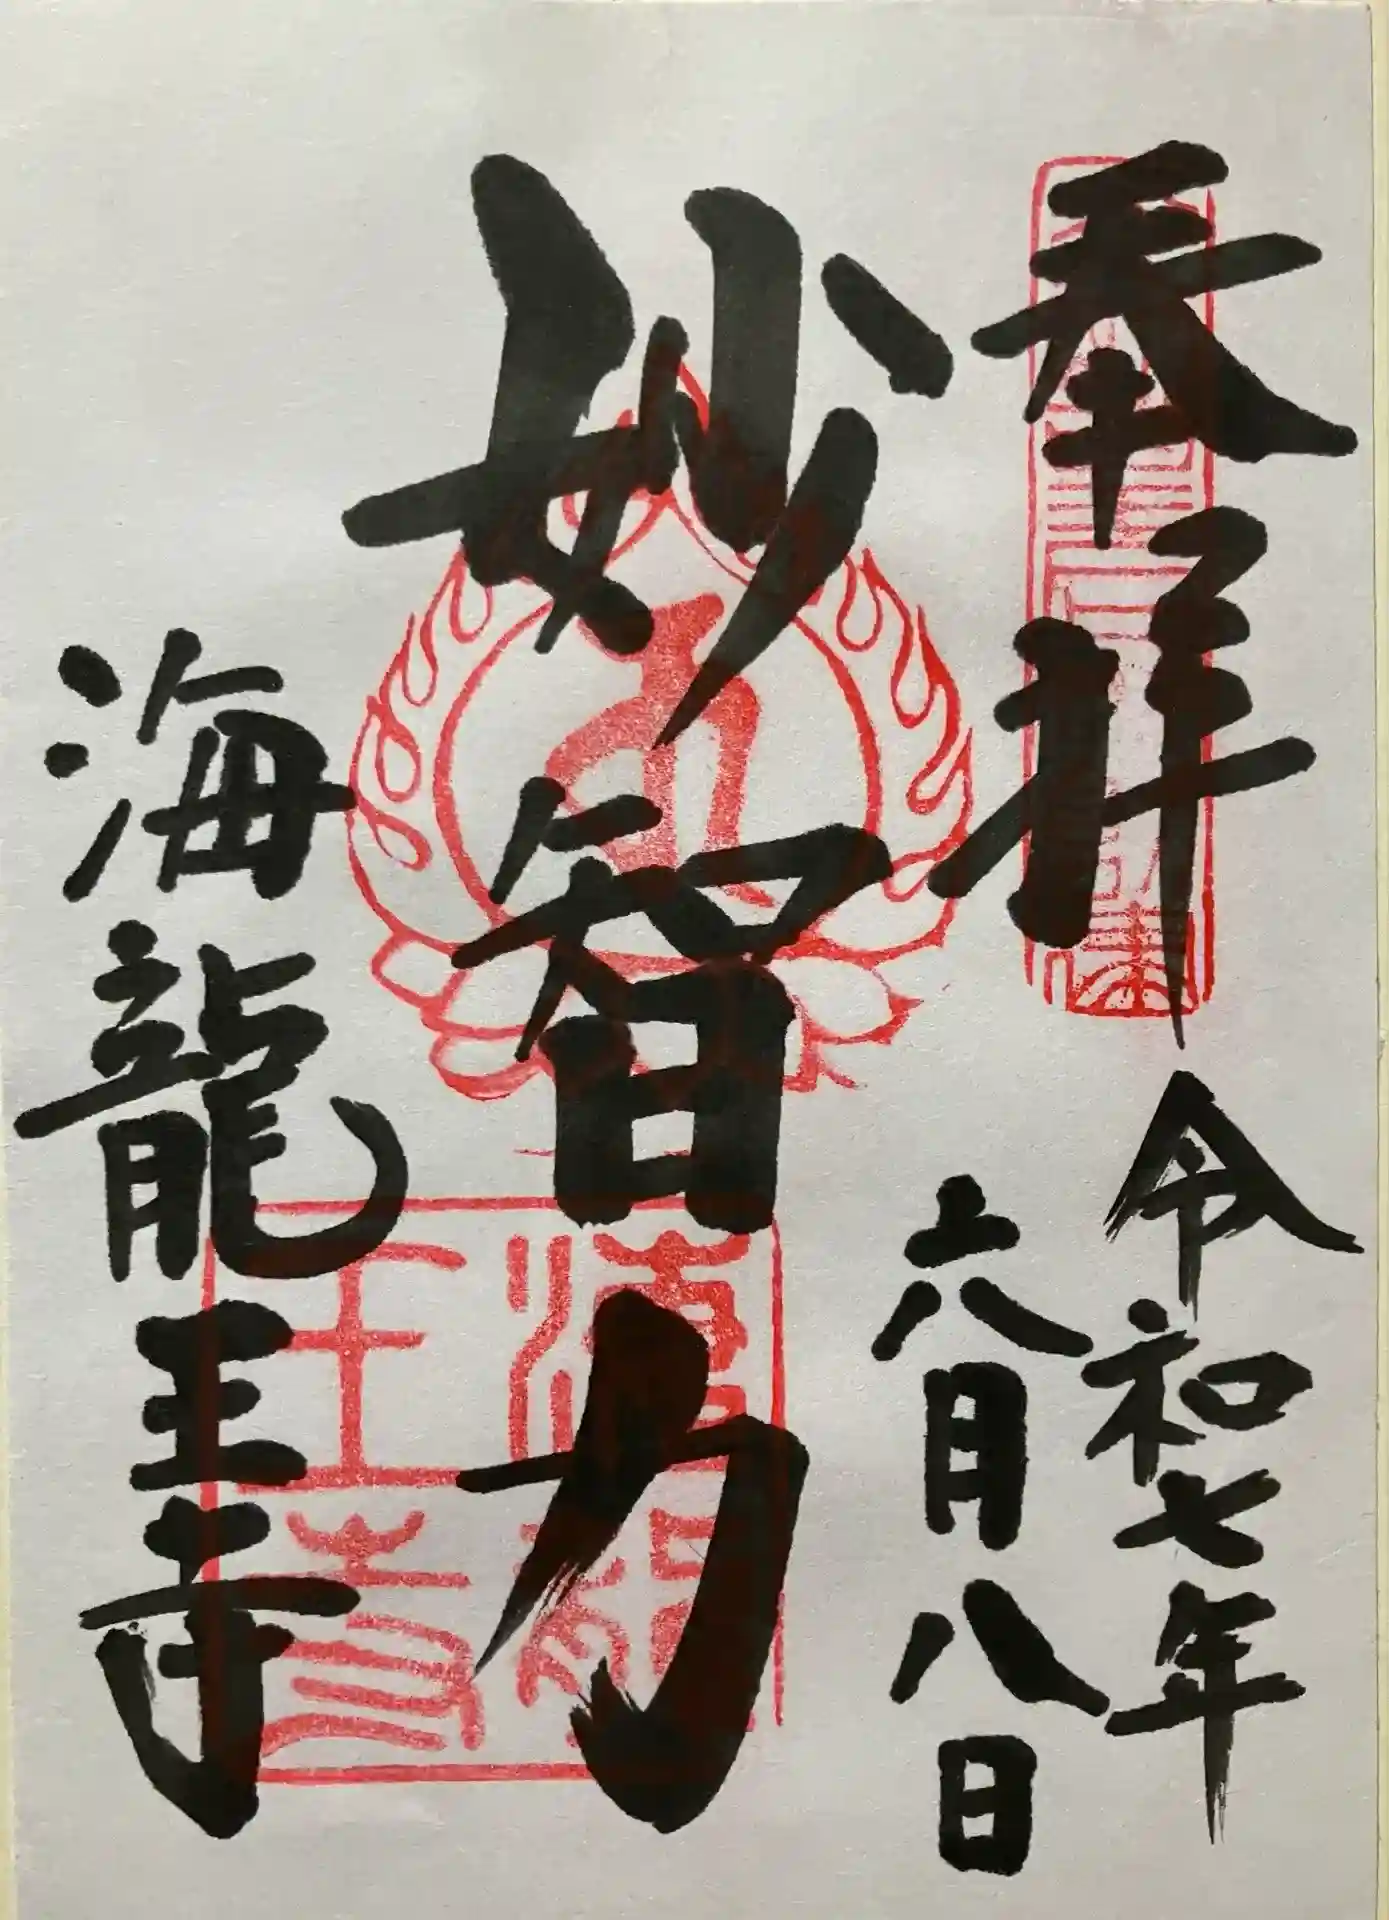 奉拝
令和七年
六月八日
妙智力
海龍王寺